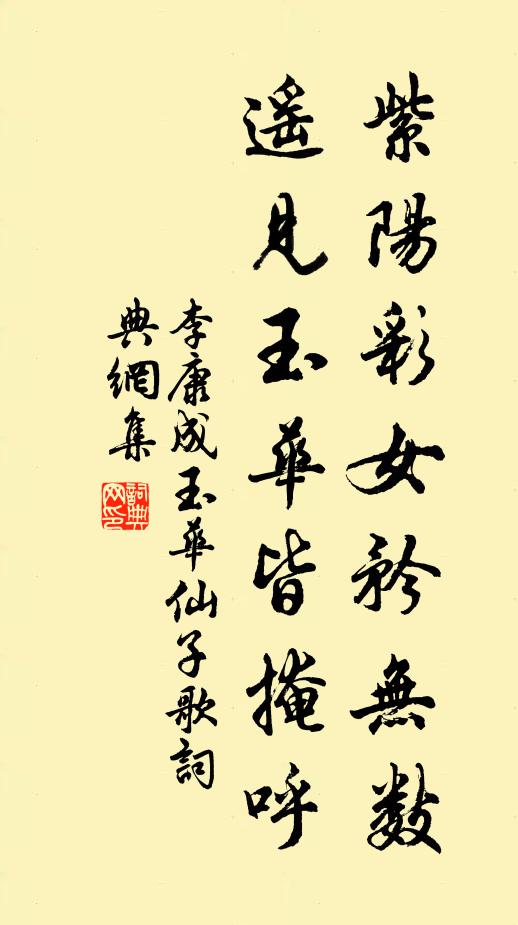 紫陽彩女矜無數
遥見玉華皆掩呼
李康成玉華仙子歌詞
典網集
詞典
网印